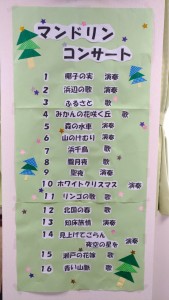 マンドリン
コンサート
1 椰子の実 演奏
2 浜辺の歌 演奏
3 ふるさと 歌
4 みかんの花咲く丘 歌
5 森の水車 演奏
6 山のけむり 演奏
7 浜千鳥 歌
8 朧月夜 歌
9 聖夜 演奏
10 ホワイトクリスマス 演奏
11 リンゴの歌 歌
12 北国の春 歌
13 知床旅情 演奏
14 見上げてごらん
夜空の星を
15 瀬戸の花嫁 歌
16 青い山脈 歌